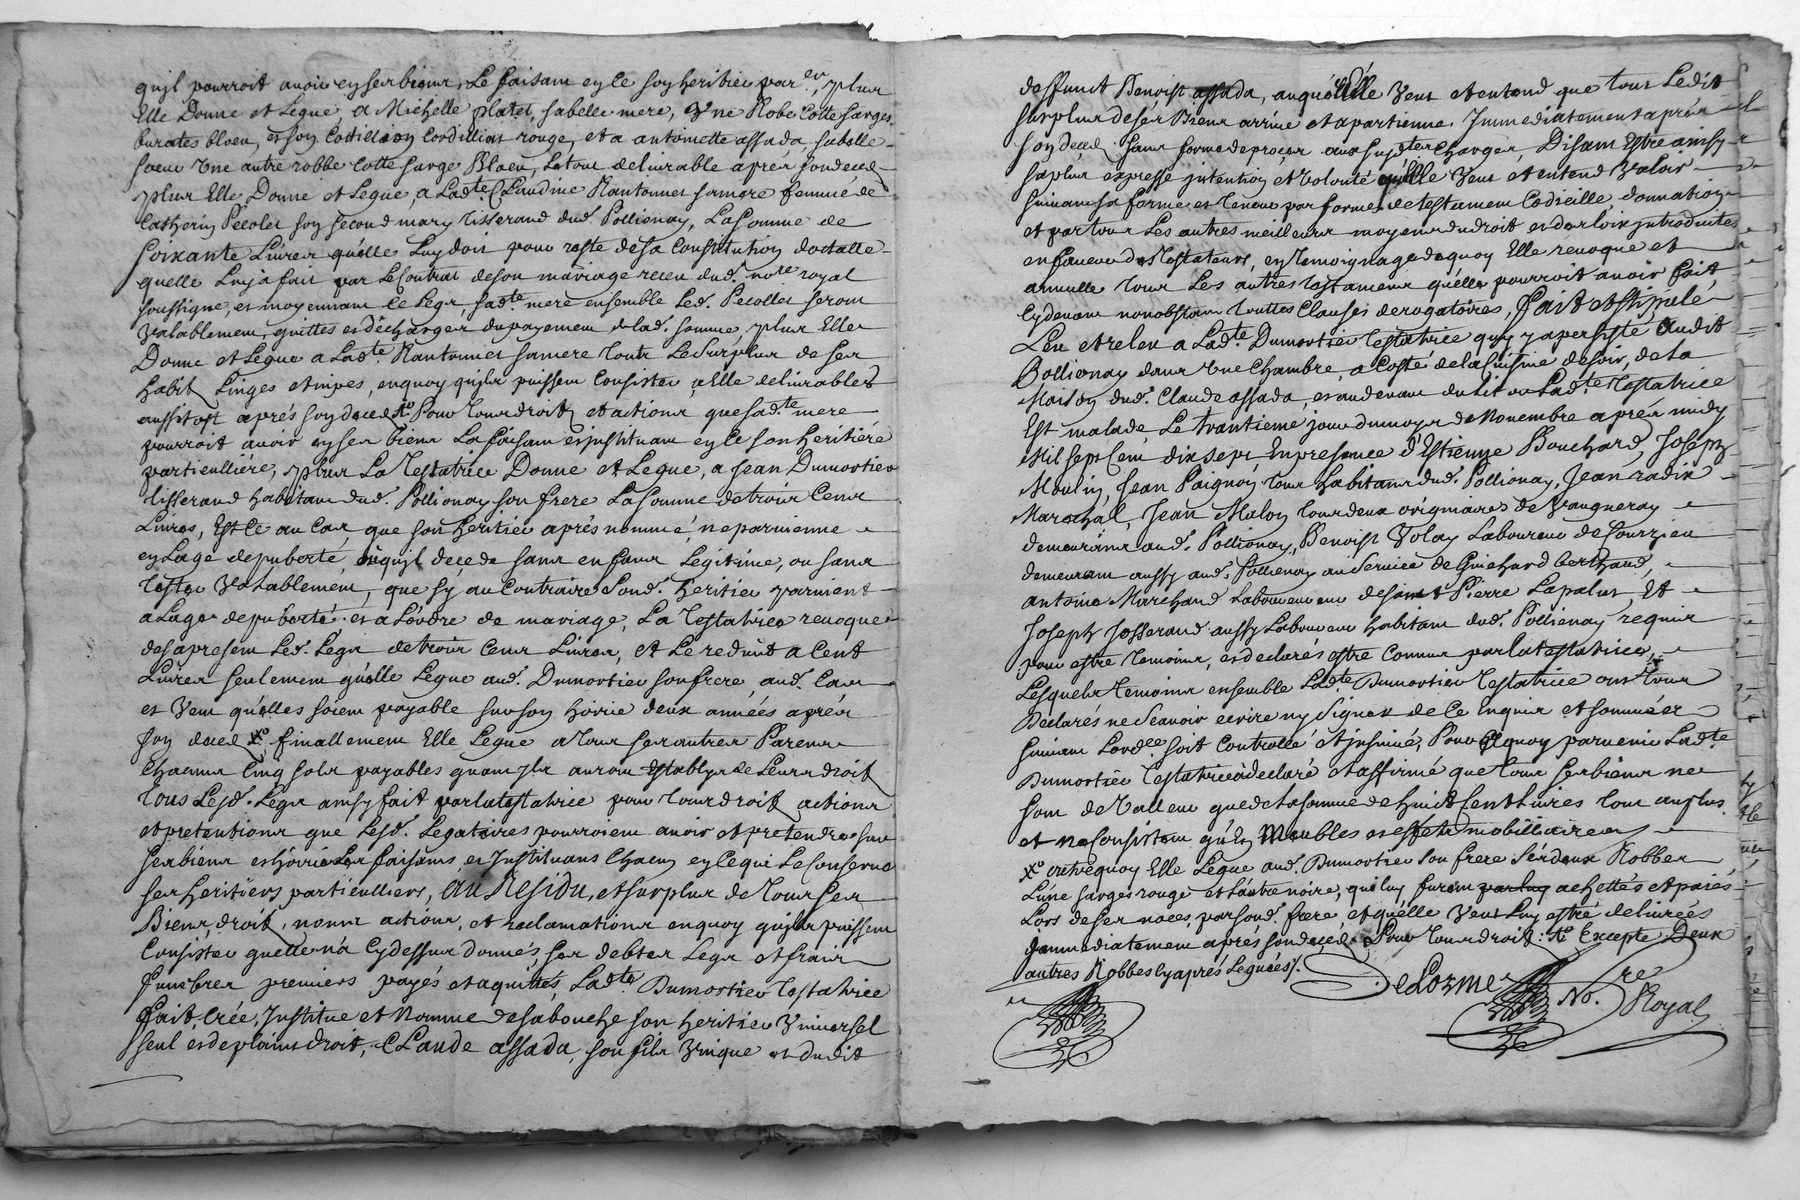 quil pourroit avoir en ses biens, Le faisant en ce son heritier par.er, plus
Elle Donne et Legue, a Michelle platet, sa belle mere, Vne Robe Cotte sarges
burates bloeu, et son Cottillion Cordillias rouge, et a antoinette assada, sa belle
soeur Vne autre robbe Cotte sarge Bloeu, Le tout deliurable apres son deced
plus Elle Donne et Legue, a Lad.te Claudine Rantonnet sa mere femme de
Catherin Pecolet son second mary tisserand dud. Pollionay, La somme de
soixante Liures qu'elle Luy doit pour reste de sa Constitution dottalle
quelle Luy a fait par Le Contrat de son mariage receu dud. no.re royal
soussigne, et moyennant Ce Legs, sad.te mere ensemble Led. Pecollet seront
Valablement, quittes et décharges du payement de lad. somme, plus Elle
Donne et Legue a Lad.te Rantonnet sa mere toutt Le Surplus de ses
habit Linges et nipes, en quoy quils puissent Consister, a Elle deliurables
aussitost aprés son deced X.o Pour tour droit et actions que sad.te mere
pourroit avoir en ses biens La faisant et instituant en ce son heritiére
particulliére, plus La Testatrice Donne et Legue, a Jean Dumortier
tisserand habitant dud. Pollionay son frere La somme de trois Cens
Liures, Est Ce au Cas, que son heritier aprés nommé, ne paruienne
en Lage de puberté, ou quil decede sans enfans Légitime, ou sans
tester Valablement, que sy au Contraire sond. heritier paruient
a Lage de puberté et a Lordre de mariage, La Testatrice reuoque
des apresent Led. Legs de trois Cens Liures, et Le reduit a Cent
Liures seulement qu'elle Legue aud. Dumortier son frere, aud. Cas
et Veut qu'elles soient payable sur son hoirie deux années aprés
son deced X.o finallement Elle Legue a tous ses autres Parens
Chacuns Cinq sols payables quand ils auront Estably de Leurs droit
tous Lesd. Legs ainsy fait par la testatrice pour tour droit actions
et pretentions que Lesd. Legataires pourroient avoir et pretendre sur
ses biens et hoirie Les faisans et Instituans Chacun en Ce qui Le Conserne
ses heritiers particulliers, Au Residu, et surplus de tous ses
Biens, droit, noms actions, et reclamations en quoy quils puissent
Consister quelle n'a Cy dessus donnés, ses debtes Legs et frais
funebres premiers payés et aquittés, Lad.te Dumortier testatrice
fait, Crée, Institue et Nomme de sa bouche son heritier Vniversel
seul et de plains droit, Claude assada, son fils Vnique et dudit
deffunct Benoist assada, auquel Elle Veut et entend que tous Ledit
surplus de ses Biens arriue et apartienne Immediatement aprés
son deced sans forme de proces aux susd.tes Charges, Disant Estre ainsy
sa plus expresse intention et Volonté qu'elle Veut et entend Valoir
suiuant sa forme et teneur par forme de testament Codicille, donnation
et par tous Les autres meilleurs moyens du droit et des loix introduites
en faueur des testateurs, en temoignage de quoy Elle reuoque et
annulle tous Les autres testamens qu'elle pourroit auoir fait
Cy deuant nonobstant touttes Clauses derogatoires, Fait et stipulé
Leu et releu a Lad.te Dumortier Testatrice quy y a persisté audit
Pollionay dans Vne Chambre, a Costé de la Cuisine de soir, de la
Maison dud. Claude assada, et au deuant du Lit ou Lad.te Testatrice
Est malade, Le trantieme jour du moys de Nouembre aprés midy
Mil sept Cent dix sept, En presence d'Estienne Bouchard, Joseph
Moulin, Jean Paignon tous habitans dud. Pollionay, Jean radix
Marechal, Jean Malon tous deux originaires de Vaugneray
demeurans aud. Pollionay, Benoist Volay Laboureur de Courzieu
demeurant aussy aud. Pollionay au seruice de Guichard berthaud,
antoine Marchand Laboureur de saint Pierre Lapalus, Et
Joseph Josserand aussy Laboureur habitant dud. Pollionay requis
pour estre temoins, et declarés estre Connus par la testatrice,
Lesquels temoins ensemble Lad.te Dumortier testatrice ont tous
Declarés ne Scauoir ecrire ny Signer de Ce Enquis et sommées
suiuant Lord.ce soit Controllé et insinué, Pour a quoy paruenir Lad.te
Dumortier testatrice a declaré et affirmé que tous ses biens ne
sont de Valleur que de la somme de huit Cent Liures tout au plus
et ne Consistent qu'En Meubles et effets mobilliaires
X.o outre quoy Elle Legue aud. Dumortier son frere ses deux Robbes
L'une sarges rouge et L'autre noire, qui luy furent par luy achettés et paiés
Lors de ses noces, par sond. frere, et qu'elle Veut Luy estre deliurées
Immediatement aprés son deced, Pour tour droit. X.o Excepte Deux
autres Robbes Cy aprés Leguées/.
DeLorme
No.re Royal